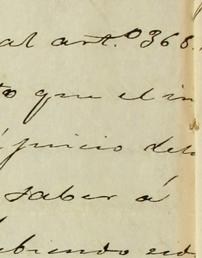 al artº 368.
to que el in
juicio deb
saber á
biendo sid